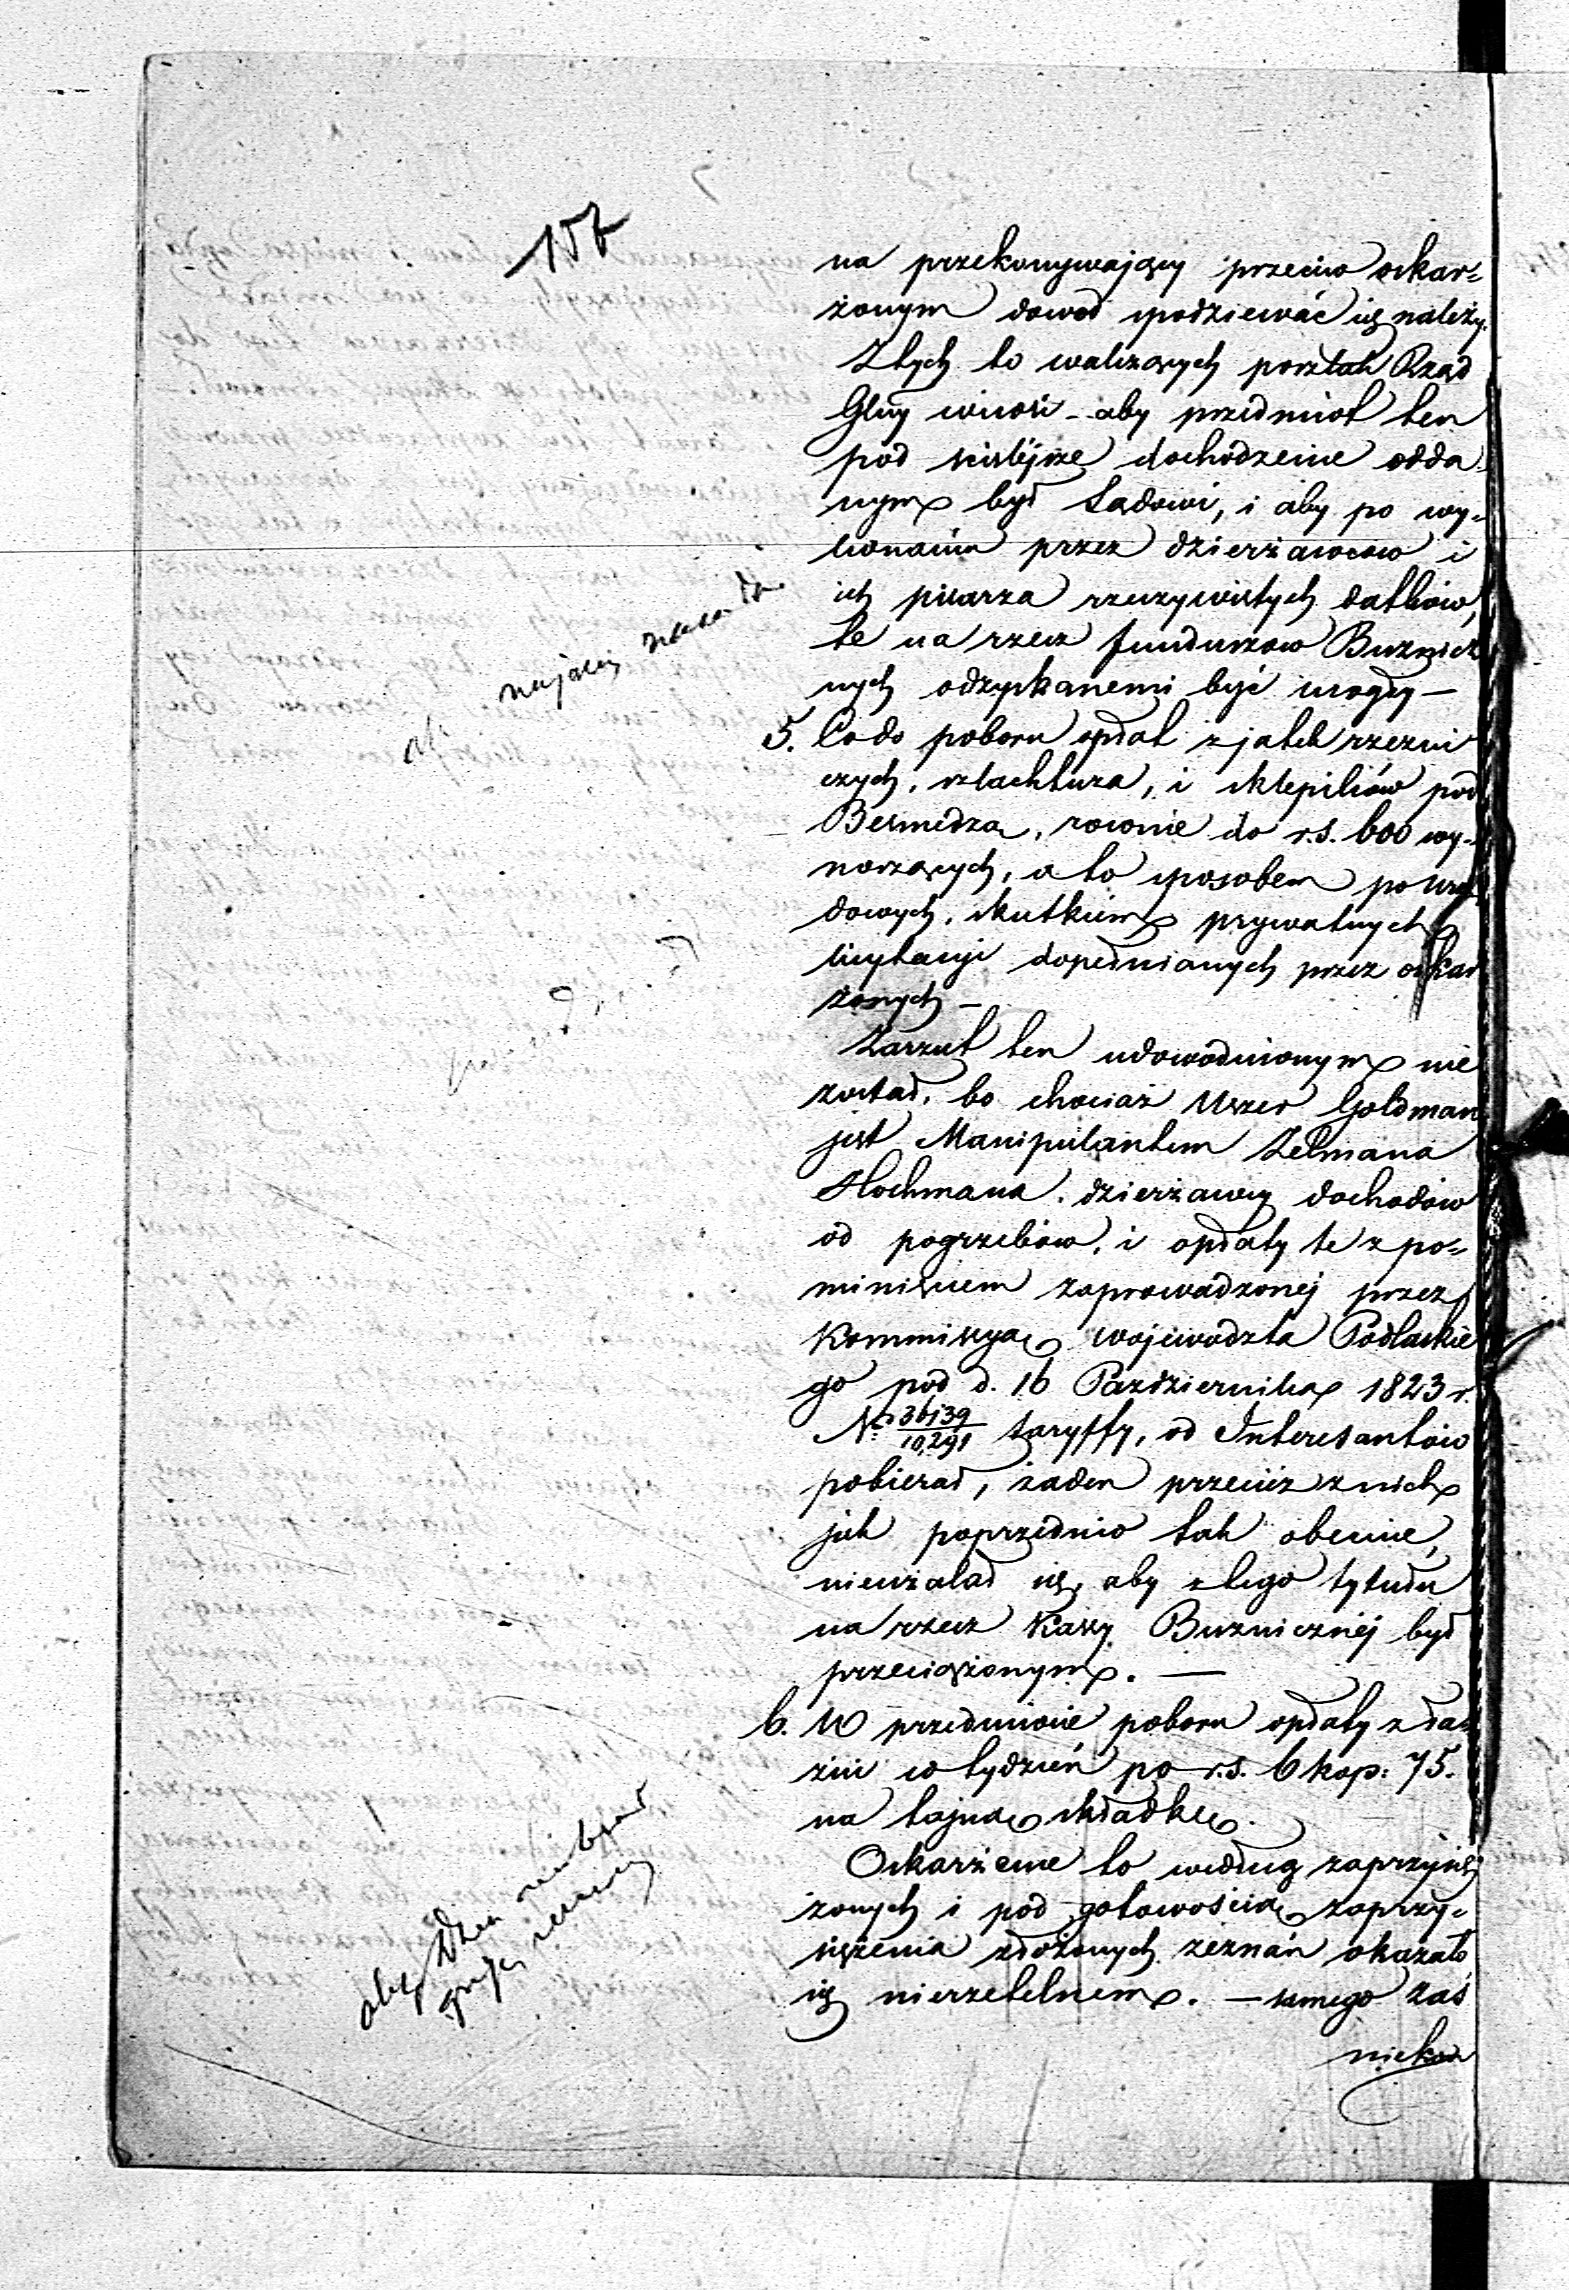 157
na przekonywający przeciw oskar=
żonym dowod spodziewać się należy.
Z tych to ważących poszlak Rząd
Gbny wnosi – aby przedmiot ten
pod ściślejsze dochodzenie odda
nym był Sądowi, i aby po wy=
konaniu przez dzierżawców i
ich pisarza rzeczywistych datków,
te na rzecz funduszow Buznicz
nych odzyskanemi być mogły —
5. Co do poboru opłat z jatek rzezni
czych, szlachtuza, i sklepików pod
Besmedzą, rownie do r.s. 600 wy=
noszących, a to sposobem po urzę
dowych, skutkiem prywatnych
licytacyi dopełnianych przez oskar
żonych —
Zarzut ten udowodnionym nie
został, bo chociaż Uszer Goldman
jest Manipulantem Zelmana
Hochmana, dzierżawcy dochodów
od pogrzebów, i opłaty te z po=
minięciem zaprowadzonej przez
Kommissyą Wojewodztwa Podlaskie
go pod d. 16 Pazdziernika 1823 r.
No 36139/10,291 taryffy, od Interesantów
pobierał, żaden przecież z nich
jak poprzednio tak obecnie,
nieużalał się, aby z tego tytułu
na rzecz Kassy Buzniczniéj był
przeciążonym. —
6. W przedmiocie poboru opłaty z ła=
zni co tydzień po r.s. 6 kop: 75.
na tajną składkę.
Oskarżenie to według zaprzysię
żonych i pod gotowością zaprzy=
siężenia złożonych zeznań okazało
się nierzetelnem. — samego zaś